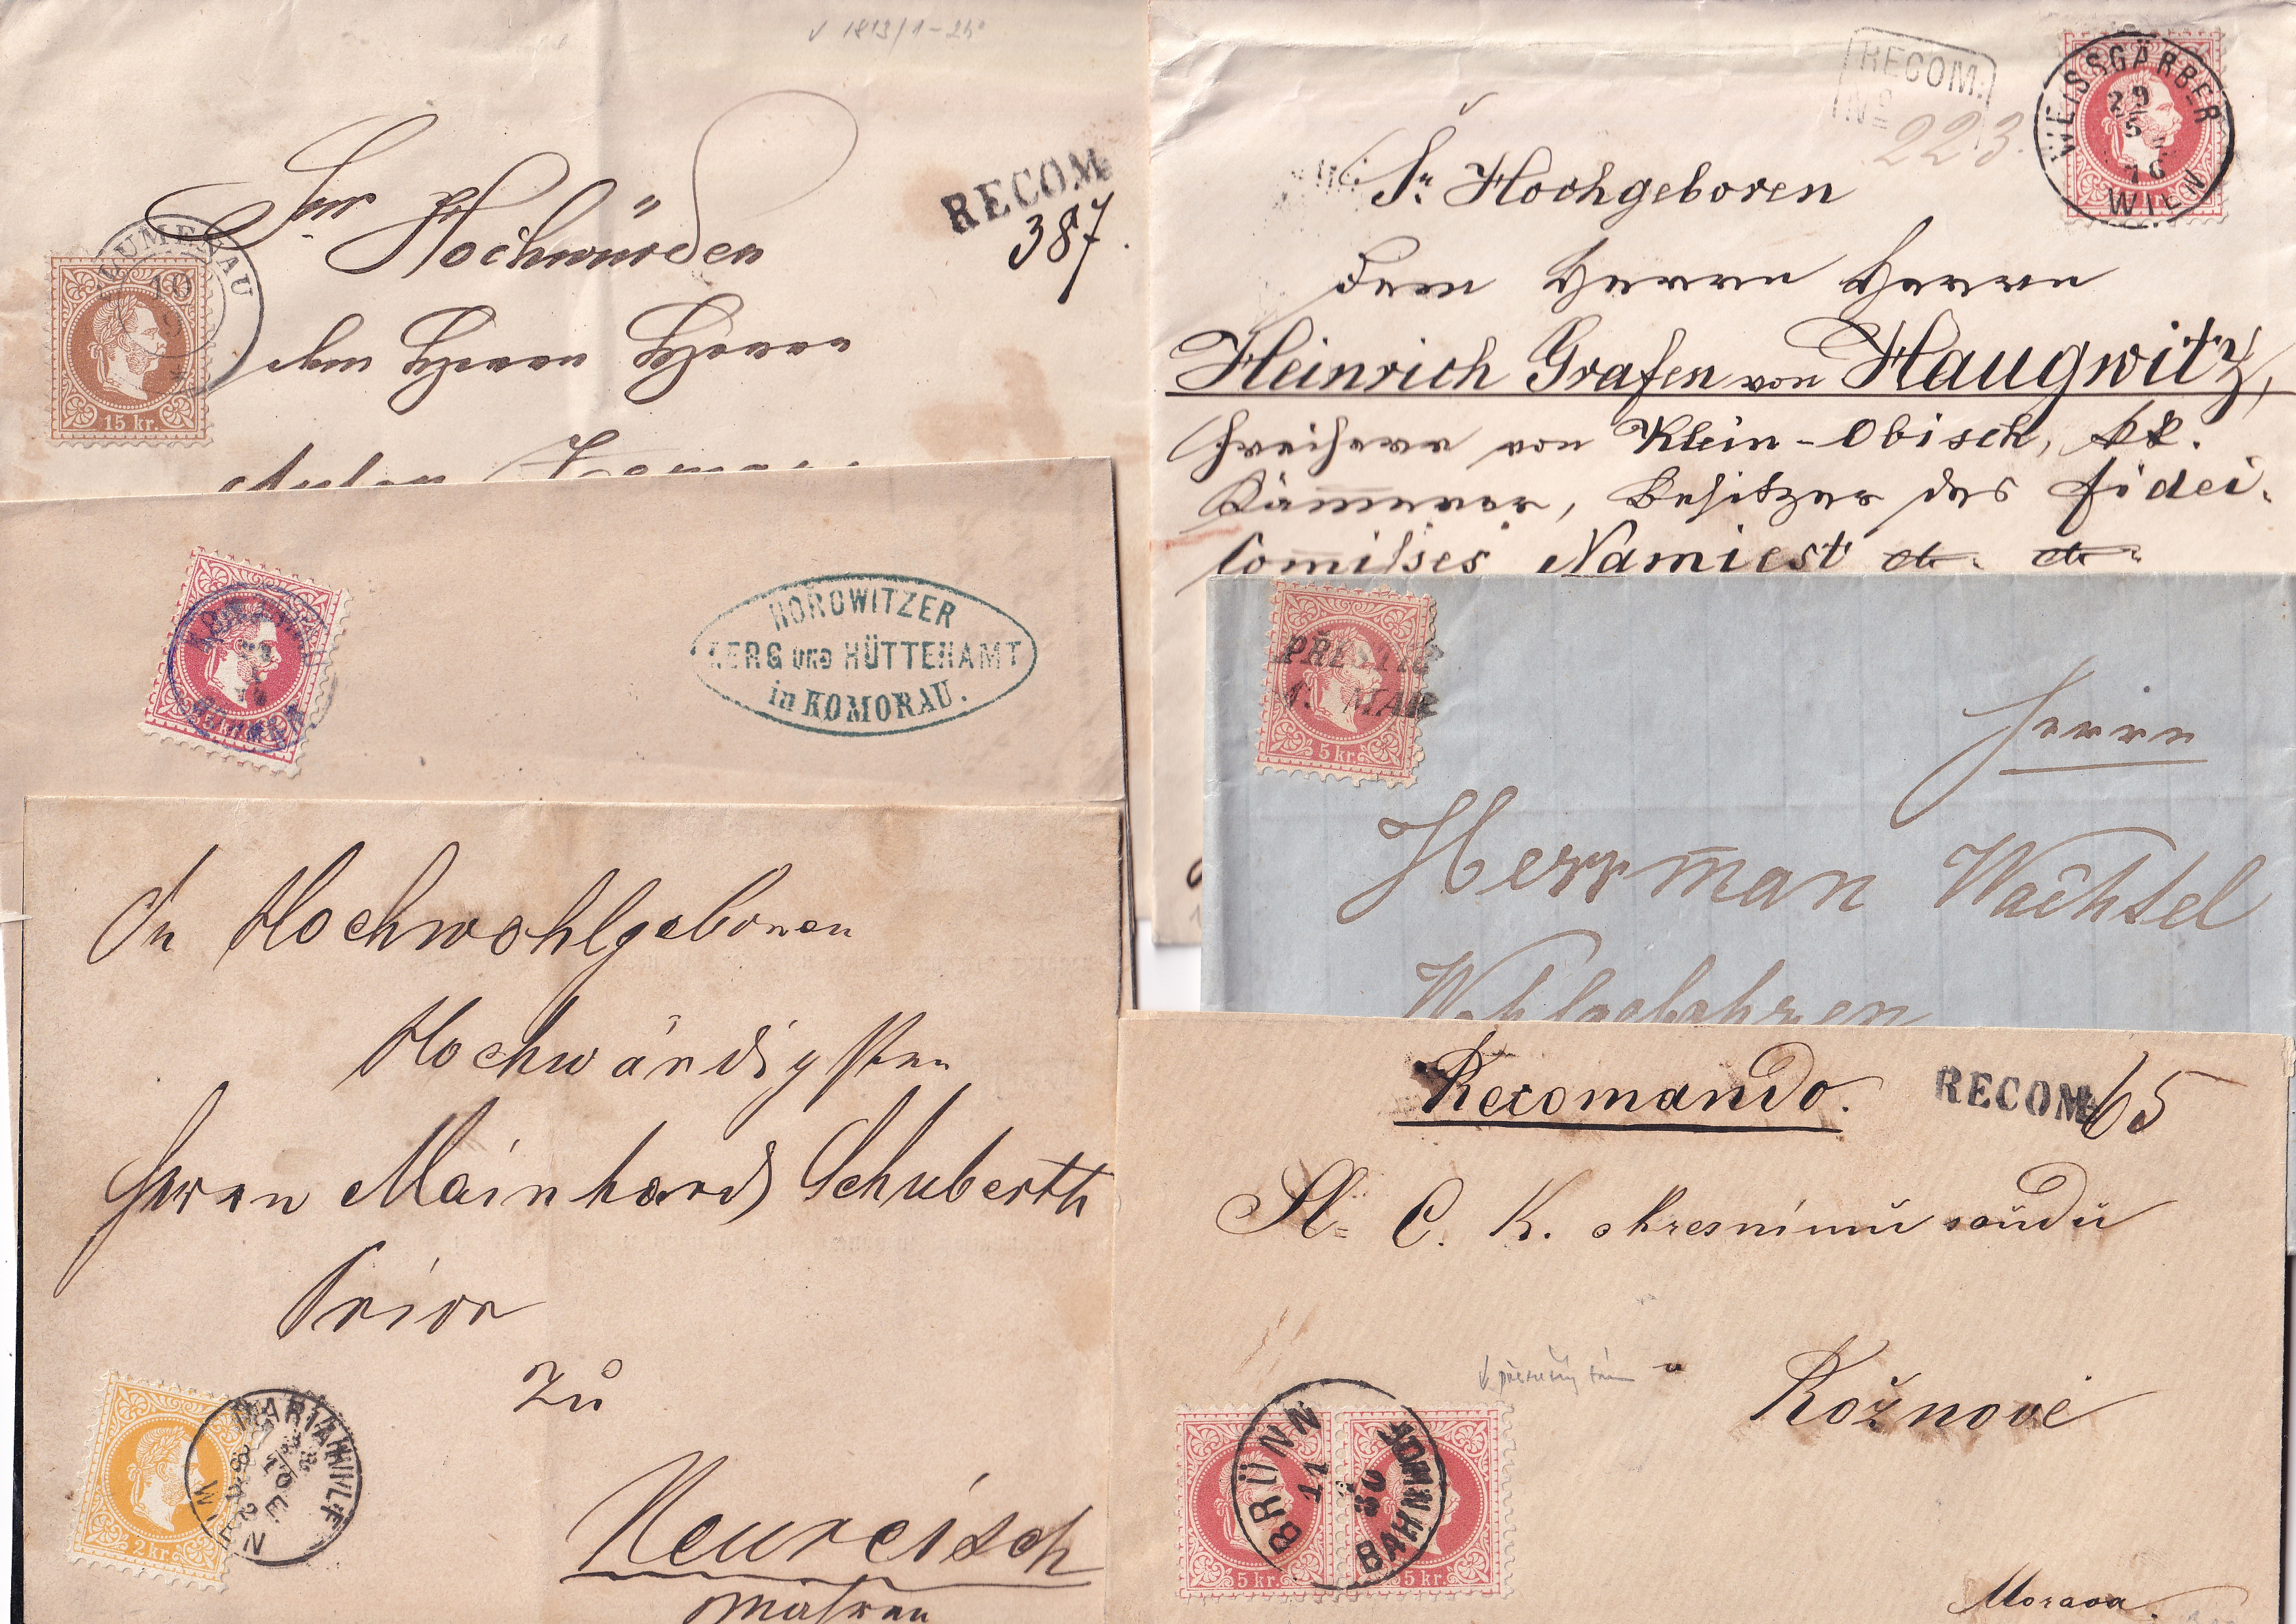 v 1813/1-
BLUMENAU
10
9
15 kr.
Sr Hochwürden
RECOM.
387.
dem Herrn Herrn
Anton
RECOM:
No 223.
WEISSGÄRBER
29
5
76
WIEN
Sr Hochgeboren
Dem Herrn Herrn
Heinrich Grafen von Haugwitz,
Freiherr von Klein-Obisch, kk.
Kämmerer, Besitzer des Fidei-
Comißses Namiest etc. etc.
HOROWITZER
BERG UND HÜTTENAMT
in KOMORAU.
PŘESTIC
1. MAR
5 kr.
Herrn
Herrman Wachtel
Wohlgebohren
Sr Hochwohlgeboren
Hochwürdigsten
Herrn Mainhard Schuberth
Prior
zu
Neureisch
Mähren
2 kr.
MARIAHILF
WIEN
Recomando.
RECOM.
65
Sl. C. K. okresnímu soudu
v
Rožnově
BRÜNN
11
30
BAHNHOF
5 kr.
5 kr.
Morava.